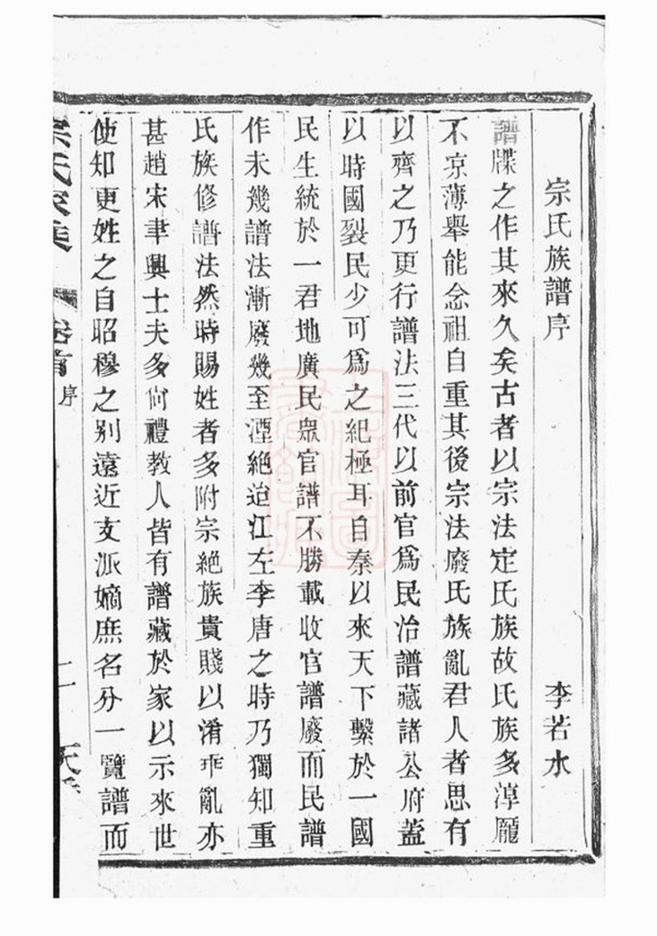 宗氏族譜序 李若水
譜牒之作其來久矣古者以宗法定氏族故氏族多淳龐
不凉薄舉能念祖自重其後宗法廢氏族亂君人者思有
以齊之乃更行譜法三代以前官爲民治譜藏諸公府葢
以時國裂民少可爲之紀極耳自秦以來天下繫於一國
民生統於一君地廣民眾官譜不勝載收官譜廢而民譜
作未幾譜法漸廢幾至湮絶迨江左李唐之時乃獨知重
氏族修譜法然時賜姓者多附宗絶族貴賤以淆乖亂亦
甚趙宋聿興士夫多尙禮教人皆有譜藏於家以示來世
使知更姓之自昭穆之别遠近支派嫡庶名分一覽譜而
卷首 序